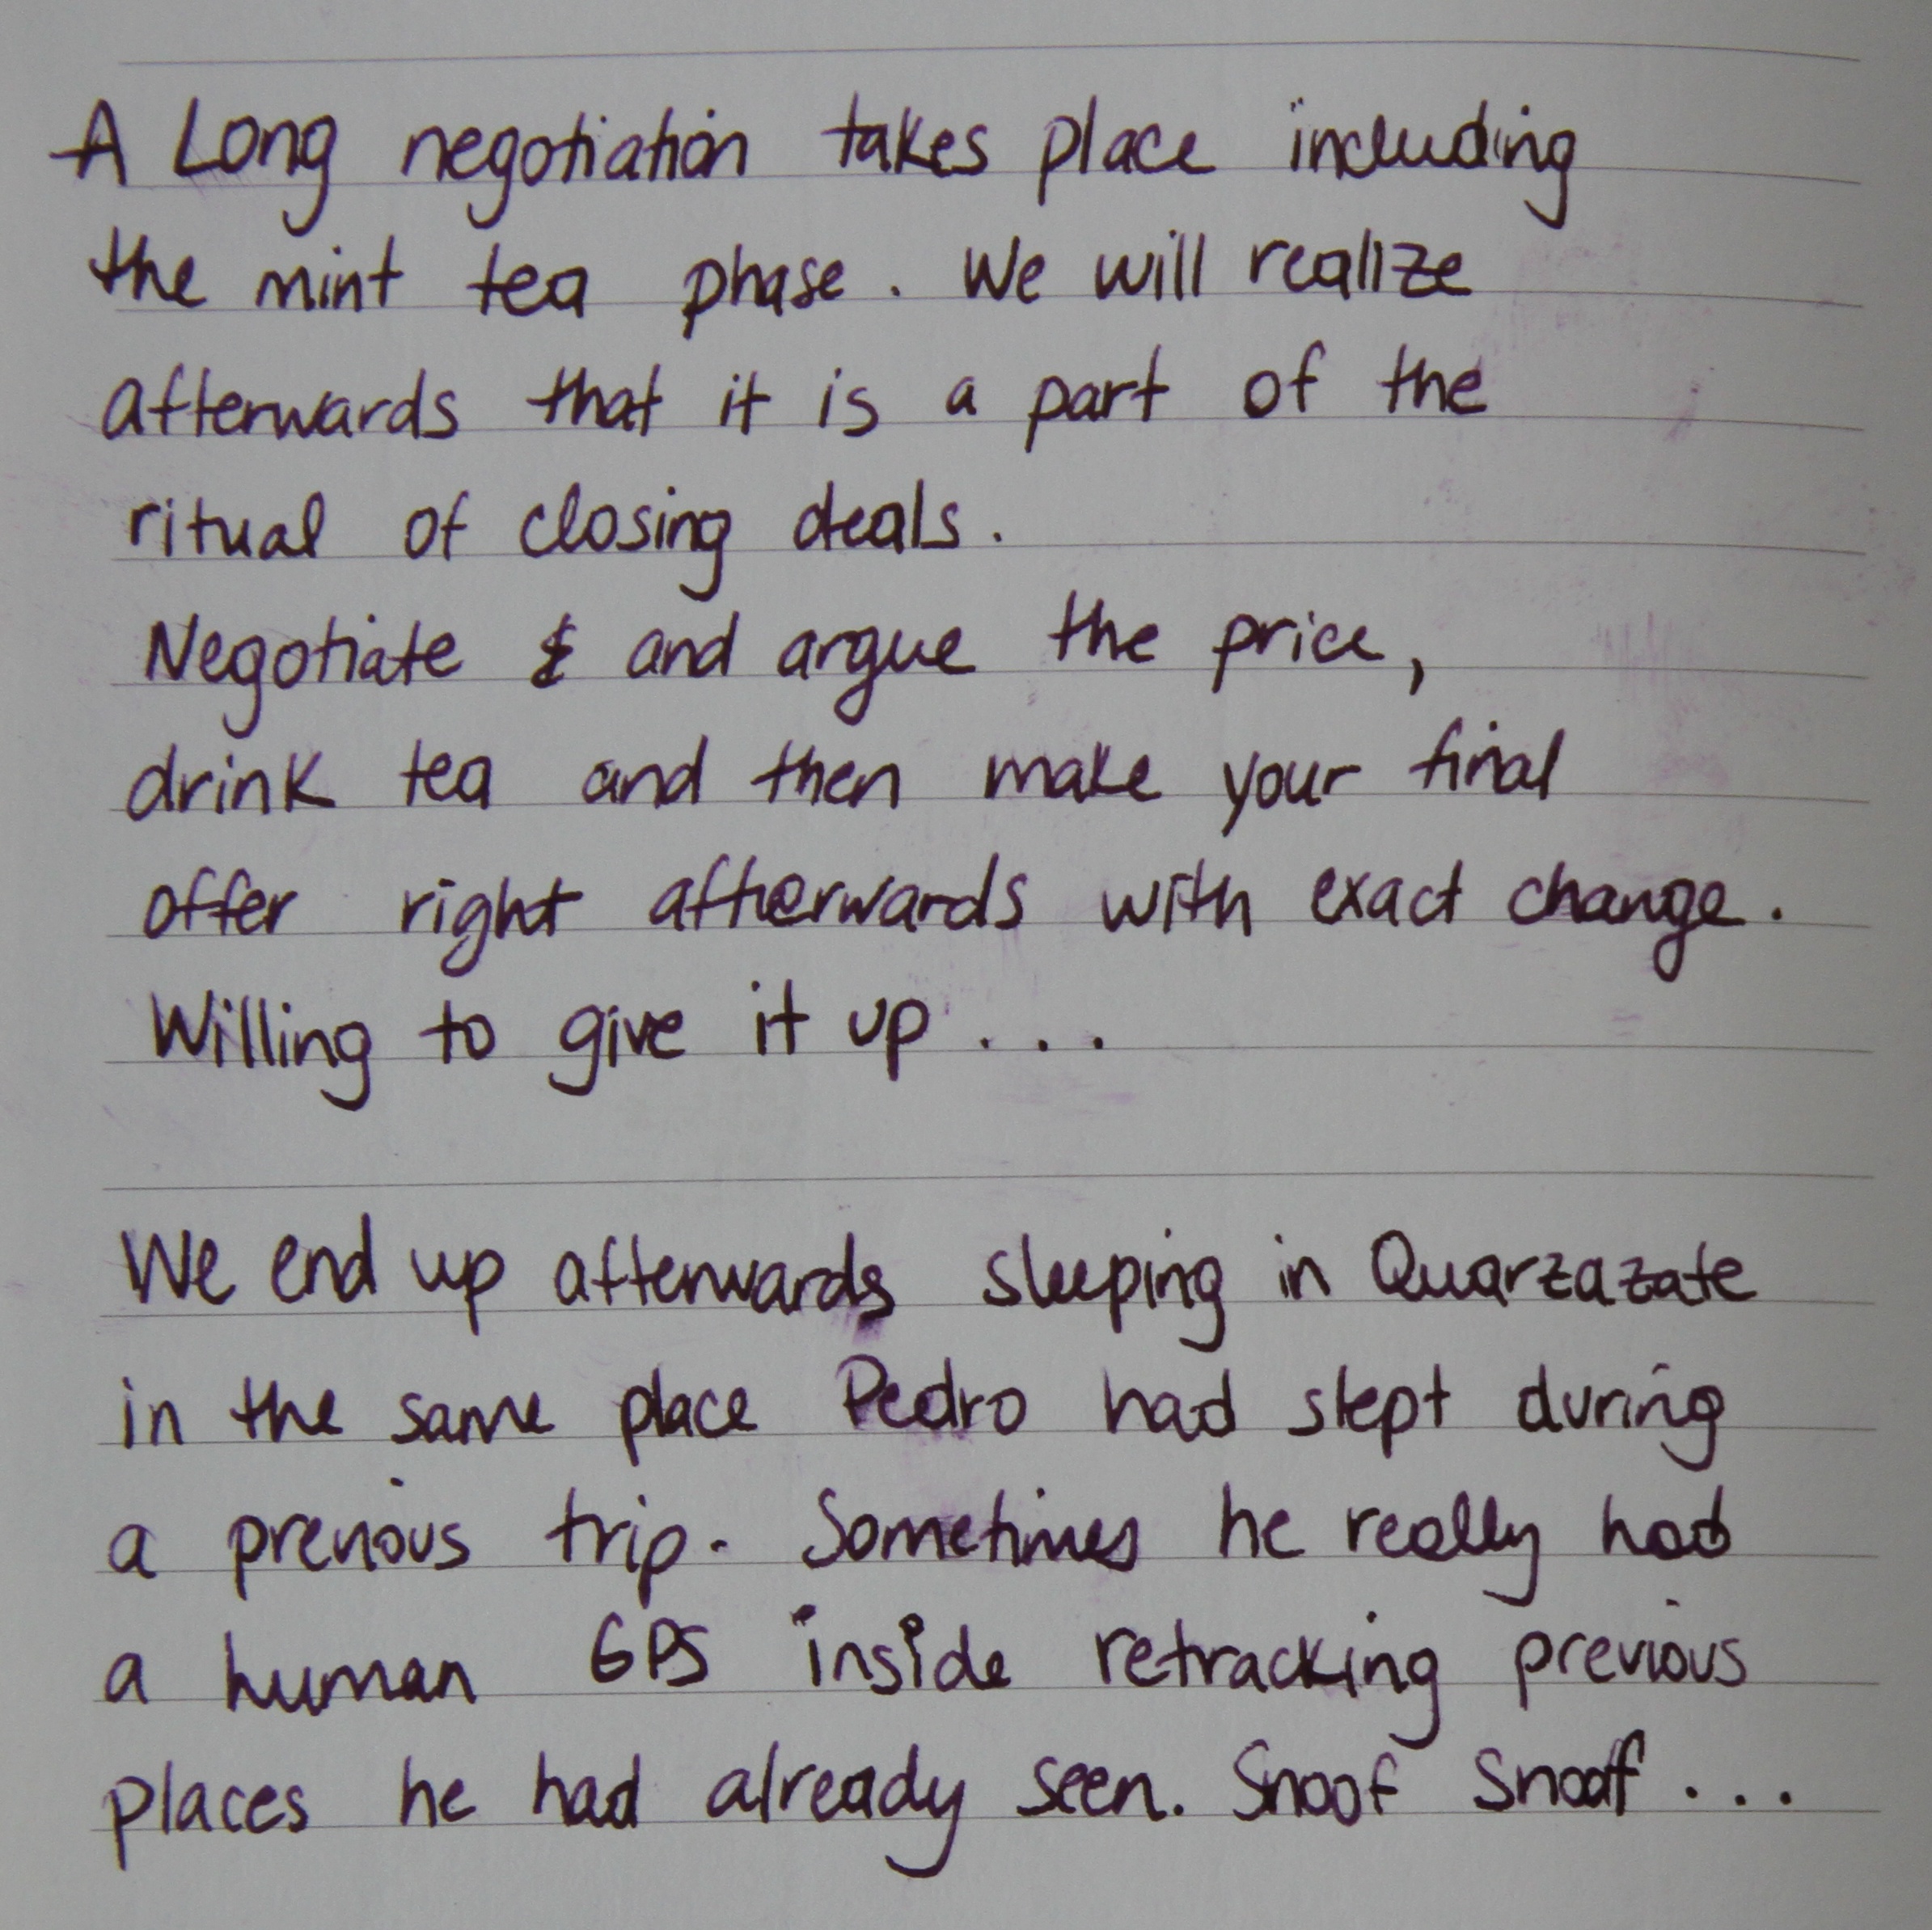 A Long negotiation takes place including
the mint tea phase. We will realize
afterwards that it is a part of the
ritual of closing deals.
Negotiate & and argue the price,
drink tea and then make your final
offer right afterwards with exact change.
Willing to give it up ...
We end up afterwards sleeping in Quarzazate
in the same place Pedro had slept during
a previous trip. Sometimes he really had
a human GPS inside retracking previous
places he had already seen. Snoof Snoof ...